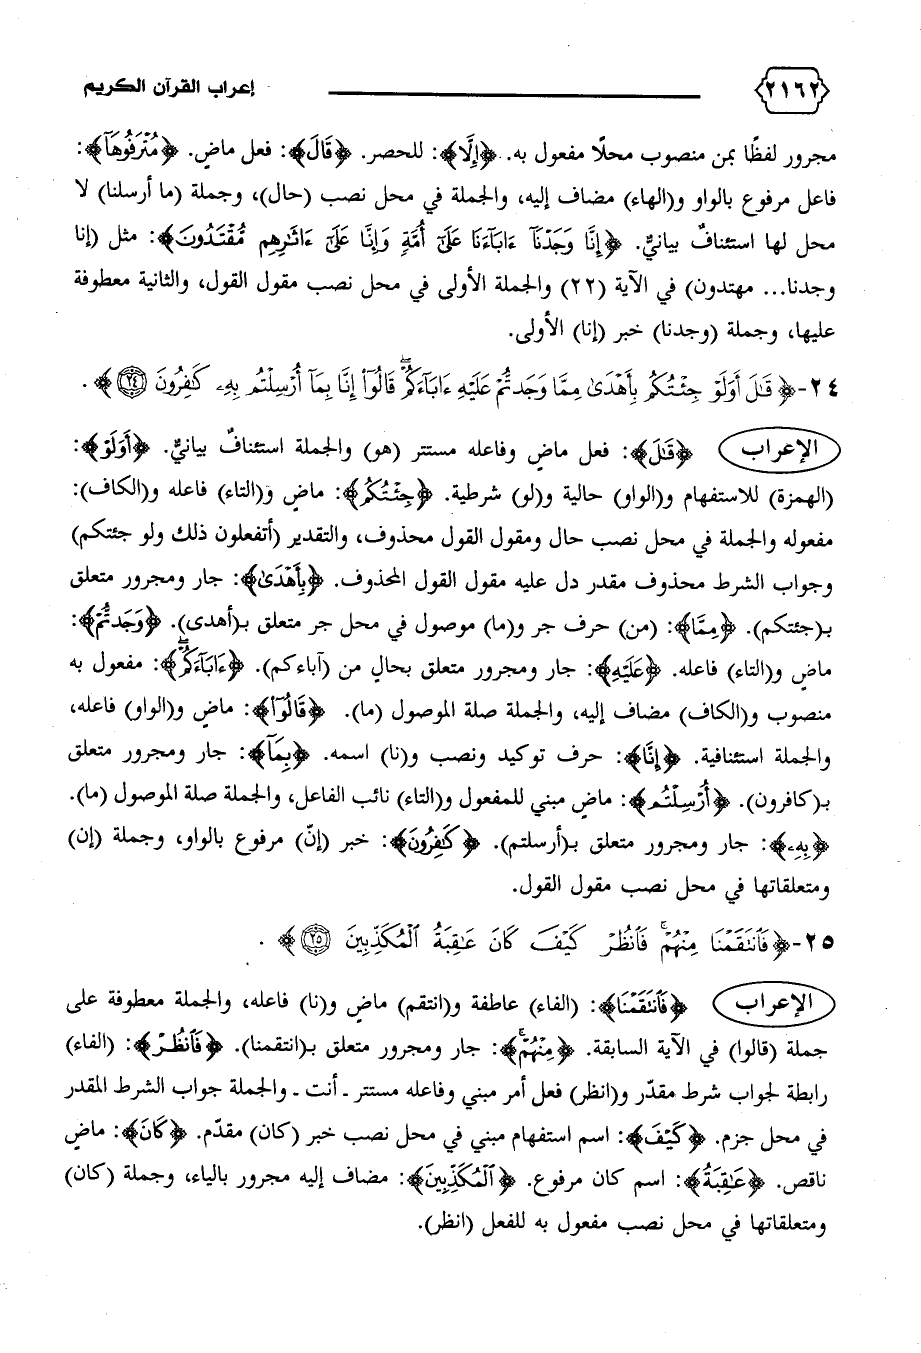 ٢١٦٢ إعراب القرآن الكريم
مجرور لفظًا بمن منصوب محلًا مفعول به. ﴿إِلَّا﴾: للحصر. ﴿قَالَ﴾: فعل ماضٍ. ﴿مُتْرَفُوهَآ﴾:
فاعل مرفوع بالواو و(الهاء) مضاف إليه، والجملة في محل نصب (حال)، وجملة (ما أرسلنا) لا
محل لها استئنافٌ بيانيٌّ. ﴿إِنَّا وَجَدْنَآ ءَابَآءَنَا عَلَىٰٓ أُمَّةٍ وَإِنَّا عَلَىٰٓ ءَاثَٰرِهِم مُّقْتَدُونَ﴾: مثل (إنا
وجدنا... مهتدون) في الآية (٢٢) والجملة الأولى في محل نصب مقول القول، والثانية معطوفة
عليها، وجملة (وجدنا) خبر (إنا) الأولى.
٢٤-﴿قَٰلَ أَوَلَوْ جِئْتُكُم بِأَهْدَىٰ مِمَّا وَجَدتُّمْ عَلَيْهِ ءَابَآءَكُمْۖ قَالُوٓا۟ إِنَّا بِمَآ أُرْسِلْتُم بِهِۦ كَٰفِرُونَ ٢٤﴾.
الإعراب ﴿قَٰلَ﴾: فعل ماضٍ وفاعله مستتر (هو) والجملة استئنافٌ بيانيٌّ. ﴿أَوَلَوْ﴾:
(الهمزة) للاستفهام و(الواو) حالية و(لو) شرطية. ﴿جِئْتُكُم﴾: ماضٍ و(التاء) فاعله و(الكاف):
مفعوله والجملة في محل نصب حال ومقول القول محذوف، والتقدير (أتفعلون ذلك ولو جئتكم)
وجواب الشرط محذوف مقدر دل عليه مقول القول المحذوف. ﴿بِأَهْدَىٰ﴾: جار ومجرور متعلق
بـ(جئتكم). ﴿مِمَّا﴾: (من) حرف جر و(ما) موصول في محل جر متعلق بـ(أهدى). ﴿وَجَدتُّمْ﴾:
ماضٍ و(التاء) فاعله. ﴿عَلَيْهِ﴾: جار ومجرور متعلق بحالٍ من (آباءكم). ﴿ءَابَآءَكُمْۖ﴾: مفعول به
منصوب و(الكاف) مضاف إليه، والجملة صلة الموصول (ما). ﴿قَالُوٓا۟﴾: ماضٍ و(الواو) فاعله،
والجملة استئنافية. ﴿إِنَّا﴾: حرف توكيد ونصب و(نا) اسمه. ﴿بِمَآ﴾: جار ومجرور متعلق
بـ(كافرون). ﴿أُرْسِلْتُم﴾: ماضٍ مبني للمفعول و(التاء) نائب الفاعل، والجملة صلة الموصول (ما).
﴿بِهِۦ﴾: جار ومجرور متعلق بـ(أرسلتم). ﴿كَٰفِرُونَ﴾: خبر (إنّ) مرفوع بالواو، وجملة (إن)
ومتعلقاتها في محل نصب مقول القول.
٢٥-﴿فَٱنتَقَمْنَا مِنْهُمْۖ فَٱنظُرْ كَيْفَ كَانَ عَٰقِبَةُ ٱلْمُكَذِّبِينَ ٢٥﴾.
الإعراب ﴿فَٱنتَقَمْنَا﴾: (الفاء) عاطفة و(انتقم) ماضٍ و(نا) فاعله، والجملة معطوفة على
جملة (قالوا) في الآية السابقة. ﴿مِنْهُمْۖ﴾: جار ومجرور متعلق بـ(انتقمنا). ﴿فَٱنظُرْ﴾: (الفاء)
رابطة لجواب شرط مقدّر و(انظر) فعل أمر مبني وفاعله مستتر ـ أنت ـ والجملة جواب الشرط المقدر
في محل جزم. ﴿كَيْفَ﴾: اسم استفهام مبني في محل نصب خبر (كان) مقدّم. ﴿كَانَ﴾: ماضٍ
ناقص. ﴿عَٰقِبَةُ﴾: اسم كان مرفوع. ﴿ٱلْمُكَذِّبِينَ﴾: مضاف إليه مجرور بالياء، وجملة (كان)
ومتعلقاتها في محل نصب مفعول به للفعل (انظر).